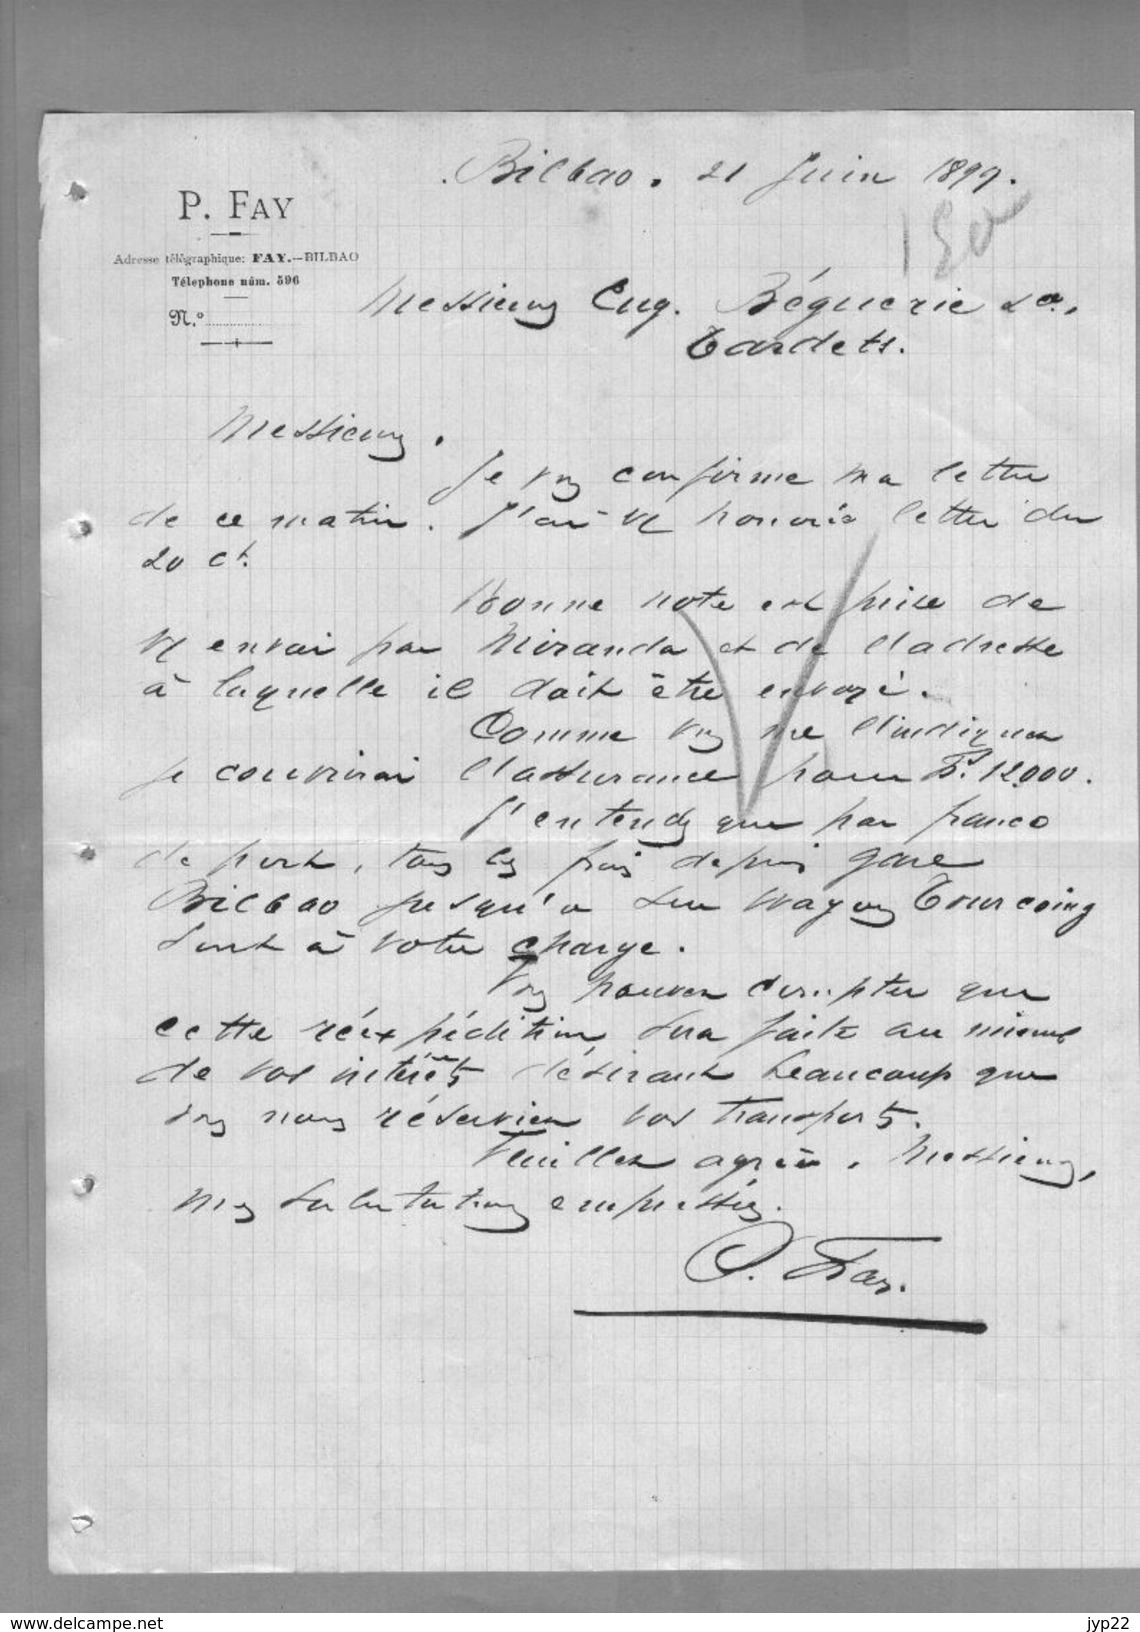 P. FAY
Adresse télégraphique: FAY.—BILBAO
Télephone núm. 596
N.º
Bilbao. 21 Juin 1899.
Messieurs Eug. Béguerie &
Tardets.
Messieurs.
Je vs confirme ma lettre
de ce matin. J'ai vt honorée lettre du
20 Ct.
Bonne note est prise de
vt envoi par Miranda et de l'adresse
à laquelle il doit être envoyé.
Comme vs me l'indiquez
je couvrirai l'assurance pour Fs. 12.000.
J'entends que par franco
de port, tous les frais depuis gare
Bilbao jusqu'à sur wagon Tourcoing
sont à votre charge.
Vous pouvez compter que
cette réexpédition sera faite au mieux
de vos intérêts désirant beaucoup que
vous nous réserviez vos transports.
Veuillez agréer, Messieurs,
mes salutations empressées.
P. Fay.
www.delcampe.net
jyp22